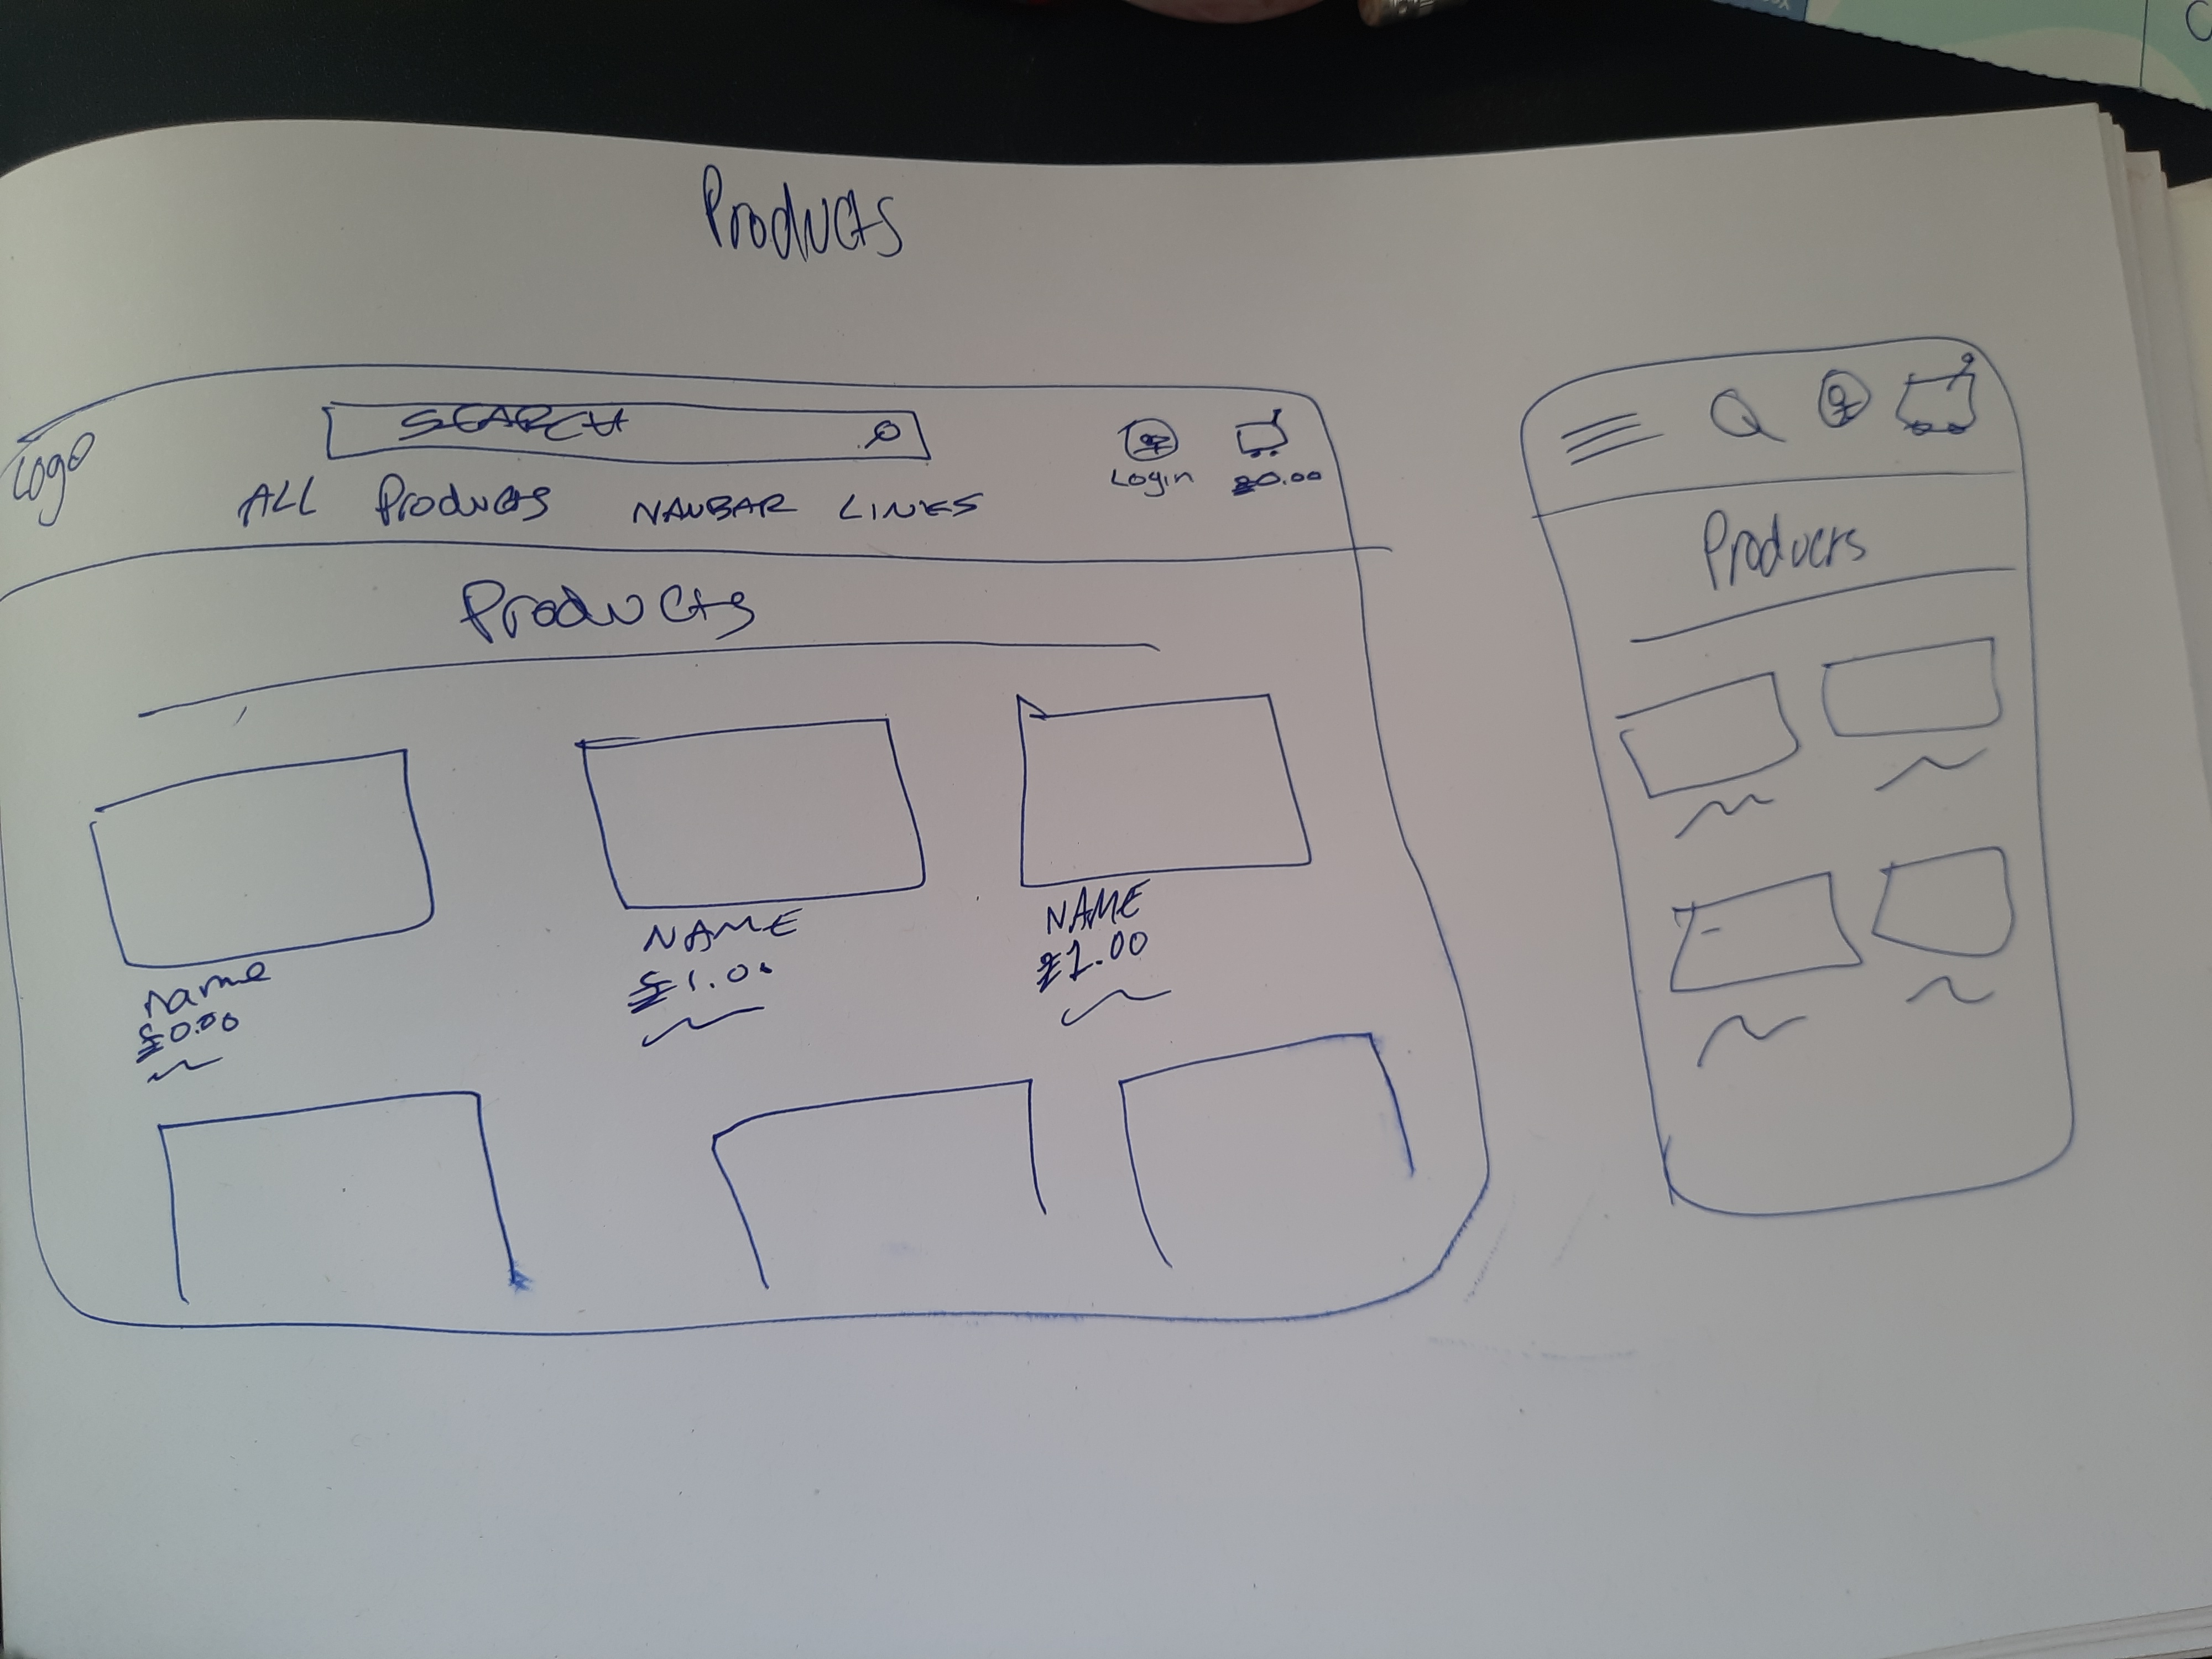 Products
Logo
SEARCH
Login
£0.00
ALL Products NAVBAR LINES
Products
Name
£0.00
NAME
£1.00
NAME
£1.00
Products